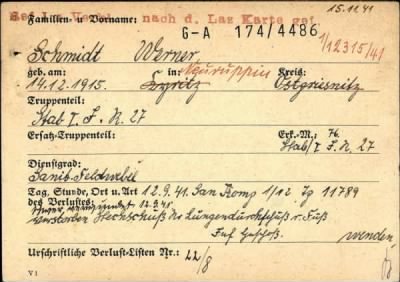 15.11.41
nach d. Laz Karte gef.
Familien- u Vorname:
G-A 174/4486
1/12315/41
Schmidt Werner
geb. am: in: Neuruppin Kreis:
14.12.1915. Kyritz Ostprignitz
Truppenteil:
Stab I. J. R. 27
Ersatz-Truppenteil: Erk.-M.: 76.
Stab/I J. R. 27
Dienstgrad:
Sanit-Feldwebel
Tag, Stunde, Ort u. Art 12.9.41. San Komp 1/12 Zg 11789
des Verlustes: verwundet 12.9.41
verstorben Steckschuß Lungendurchschuß r. Fuß
Inf. Geschoß. wenden,
Urschriftliche Verlust-Listen Nr.: 22/8
V 1